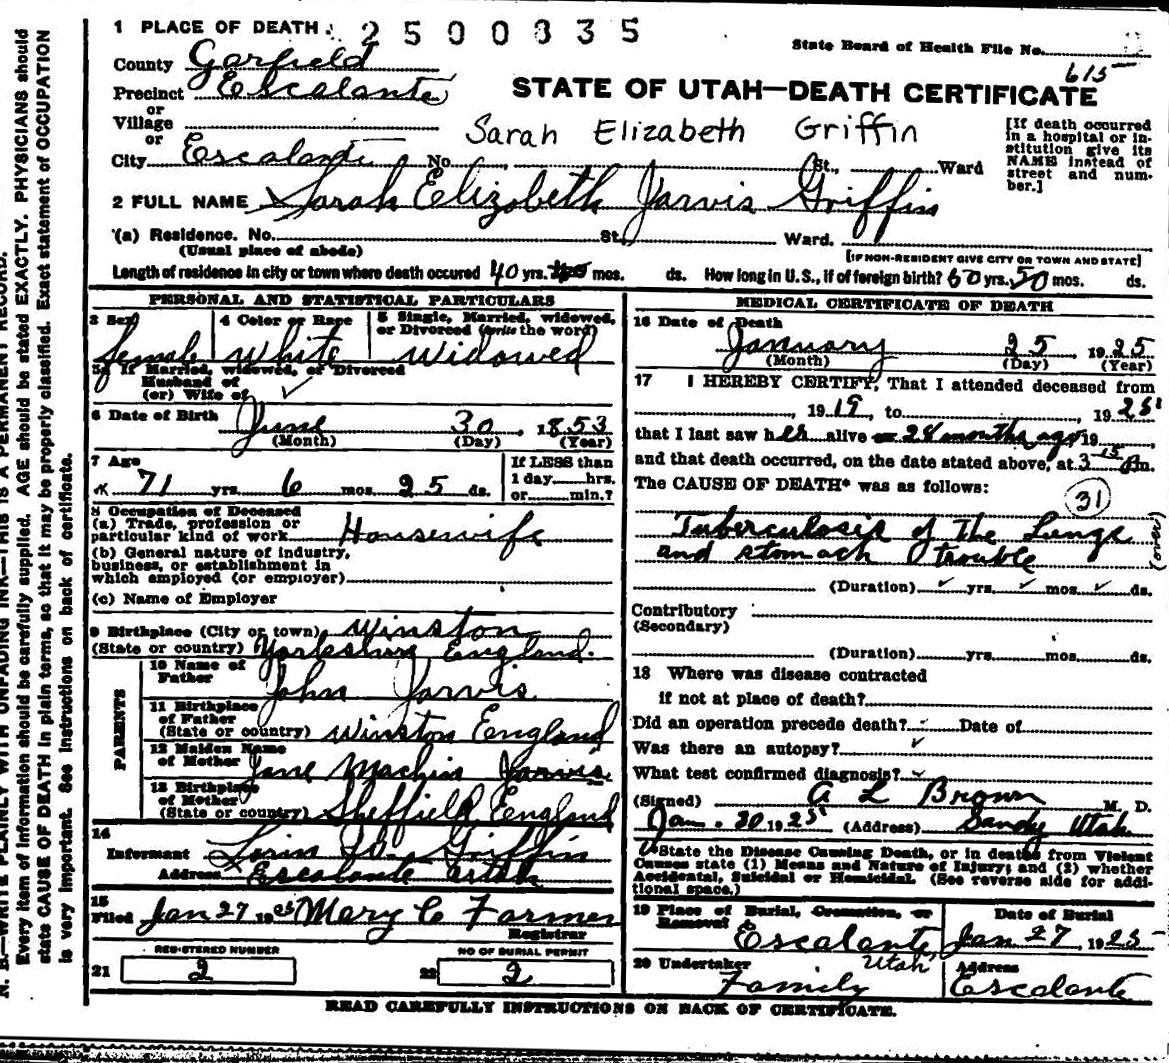 1 PLACE OF DEARTH: 2500835
State Board of Health File No.
615
County Garfield
Precinct Escalante
STATE OF UTAH—DEATH CERTIFICATE
or
Village
or
Sarah Elizabeth Griffin
[If death occurred in a hospital or institution give its NAME instead of street and number.]
City Escalante No. St., Ward
2 FULL NAME Sarah Elizabeth Jarvis Griffin
(a) Residence. No. St. Ward.
(Usual place of abode) [IF NON-RESIDENT GIVE CITY OR TOWN AND STATE]
Length of residence in city or town where death occured 40 yrs. mos. ds. How long in U.S., if of foreign birth? 60 yrs. 50 mos. ds.
PERSONAL AND STATISTICAL PARTICULARS
3 Sex 4 Color or Race 5 Single, Married, widowed, or Divorced (write the word)
Female White Widowed
5a If Married, widowed, or Divorced
Husband of
(or) Wife of
6 Date of Birth June 30, 1853
(Month) (Day) (Year)
7 Age If LESS than
71 yrs. 6 mos. 25 ds. 1 day hrs.
or min.?
8 Occupation of Deceased
(a) Trade, profession or
particular kind of work Housewife
(b) General nature of industry,
business, or establishment in
which employed (or employer)
(c) Name of Employer
9 Birthplace (City or town) Winston
(State or country) England.
PARENTS
10 Name of
Father John Jarvis
11 Birthplace
of Father
(State or country) Winston England
12 Maiden Name
of Mother Jane Machin Jarvis
13 Birthplace
of Mother
(State or country) Sheffield England
14
Informant Griffin
Address Escalante Utah
15
Filed Jan 27 1925 Mary C Farmer
Registrar
REGISTERED NUMBER NO OF BURIAL PERMIT
21 2 22 2
MEDICAL CERTIFICATE OF DEATH
16 Date of Death
January 25, 1925
(Month) (Day) (Year)
17 I HEREBY CERTIFY, That I attended deceased from
, 1919, to , 1925
that I last saw her alive on 24 months ago 19
and that death occurred, on the date stated above, at 3 15 Pm.
The CAUSE OF DEATH* was as follows:
31
Tuberculosis of The Lungs
and stomach trouble
(over)
(Duration) yrs. mos. ds.
Contributory
(Secondary)
(Duration) yrs. mos. ds.
18 Where was disease contracted
if not at place of death?
Did an operation precede death? Date of
Was there an autopsy?
What test confirmed diagnosis?
(Signed) A L Brown M. D.
Jan. 30 1925 (Address) Sandy Utah
*State the Disease Causing Death, or in deaths from Violent
Causes state (1) Means and Nature of Injury; and (2) whether
Accidental, Suicidal or Homicidal. (See reverse side for addi-
tional space.)
19 Place of Burial, Cremation, or Date of Burial
Removal
Escalante Utah Jan 27, 1925
20 Undertaker Address
Family Escalante
READ CAREFULLY INSTRUCTIONS ON BACK OF CERTIFICATE.
N. B.—WRITE PLAINLY WITH UNFADING INK—THIS IS A PERMANENT RECORD.
Every item of information should be carefully supplied. AGE should be stated EXACTLY. PHYSICIANS should
state CAUSE OF DEATH in plain terms, so that it may be properly classified. Exact statement of OCCUPATION
is very important. See instructions on back of certificate.